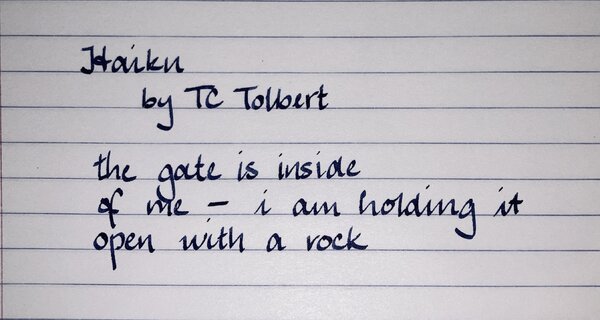 Haiku
by TC Tolbert
the gate is inside
of me – i am holding it
open with a rock